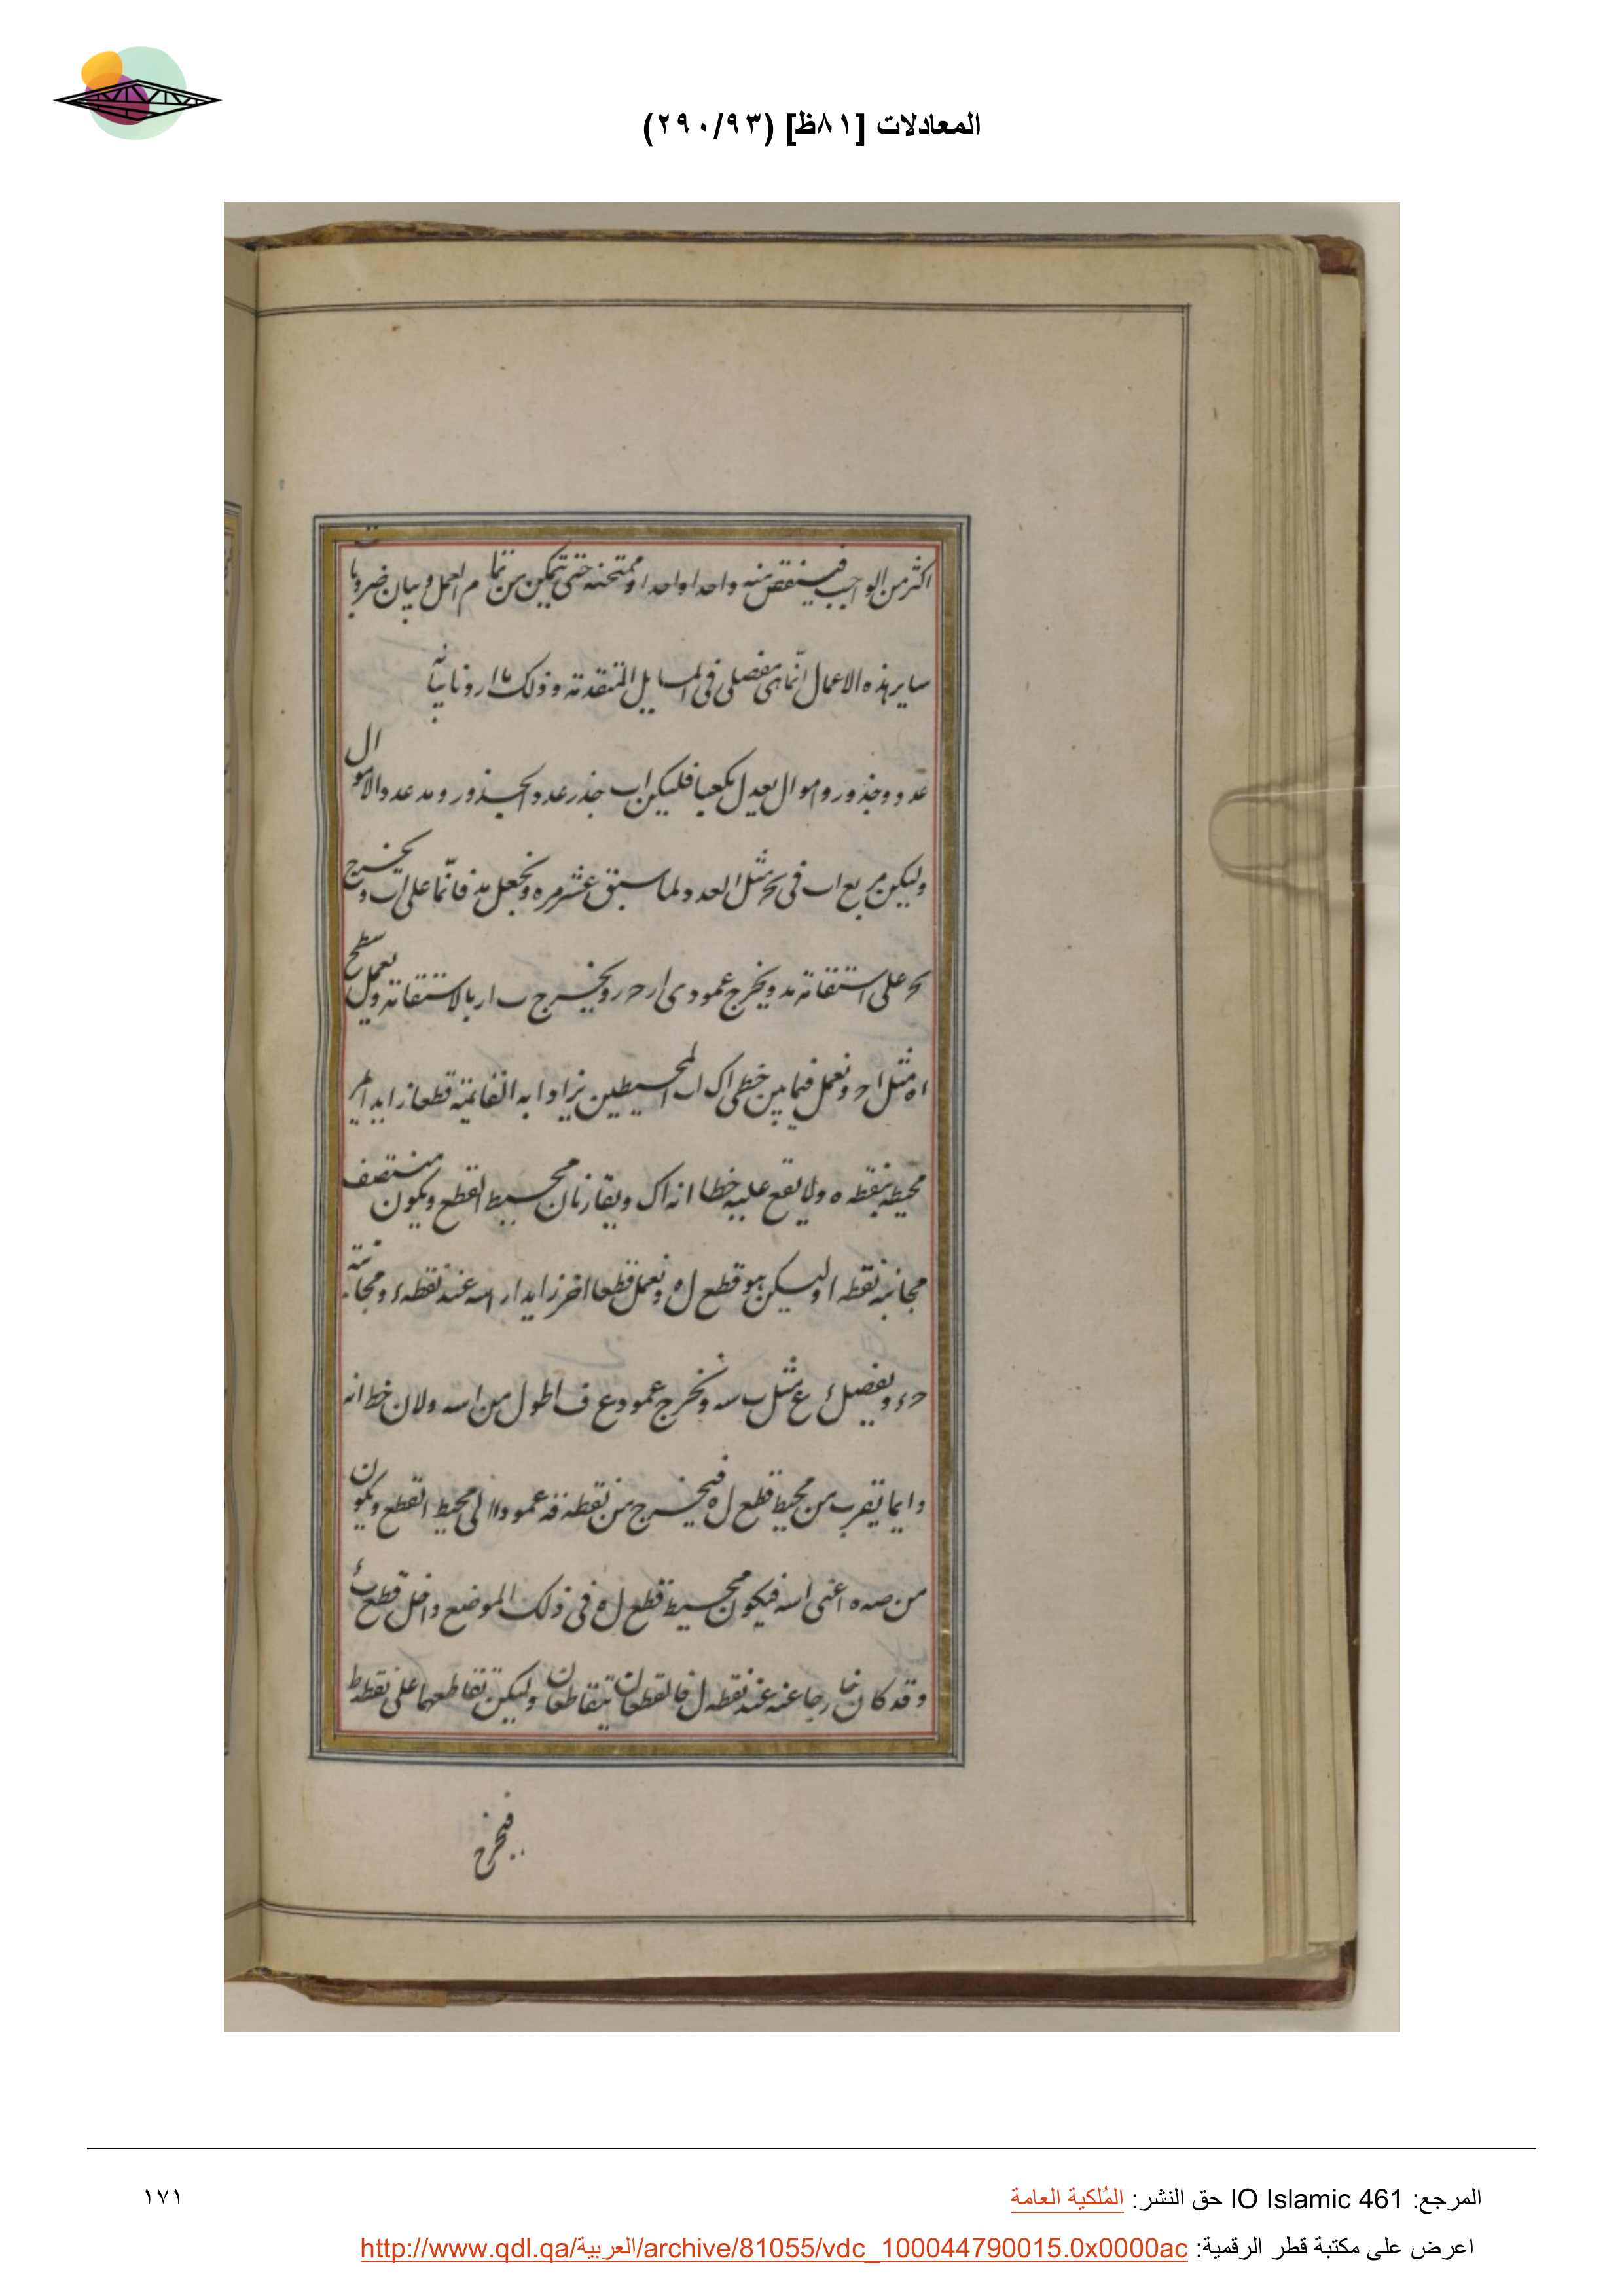 المعادلات [٨١ظ] (٢٩٠/٩٣)
اكثر من الواجب فينقص منه واحدا واحدا وممتحنه حتى يتمكن من تمام العمل وبيان ضروبات
ساير هذه الاعمال انما هى مفصلى فى المسايل المتقدمة وذلك ما اردنا بيانه
عدد وجذور واموال يعدل مكعبا فليكن اب جذر عدد الجذور ومد عدد الاموال
وليكن مربع اب فى بح مثل العدد ولما سبق عشر مره ونجعل مد قائما على اب ويخرج
بح على استقامة مد ويخرج عمودى ار حر ويخرج ب ار بالاستقامة ونعمل سطح
اه مثل اح ونعمل فيما بين خطى اك اب المحيطين بزاوابه القايمة قطعا زايدا يمر
محيطه بنقطه ه ولا يقع عليه خطا انه اك ويقارنان محيط القطع ويكون منتصف
مجانبه نقطه ا وليكن هو قطع ل ه ونعمل قطعا اخر زايدا راسه عند نقطه ء ومجانبته
حء ويفصل ء ع مثل ب سه ونخرج عمود ع ف اطول من اسه ولان خط انه
دايما يقرب من محيط قطع ل ه فيخرج من نقطه قه عمودا الى محيط القطع ويكون
من صه ه اعنى اسه فيكون محيط قطع ل ه فى ذلك الموضع داخل قطع ء
وقد كان خارجا عنه عند نقطه ل فالقطعان يتقاطعان وليكن تقاطعهما على نقطه ط
فيخرج
المرجع: IO Islamic 461 حق النشر: المُلكية العامة
١٧١
اعرض على مكتبة قطر الرقمية: http://www.qdl.qa/العربية/archive/81055/vdc_100044790015.0x0000ac